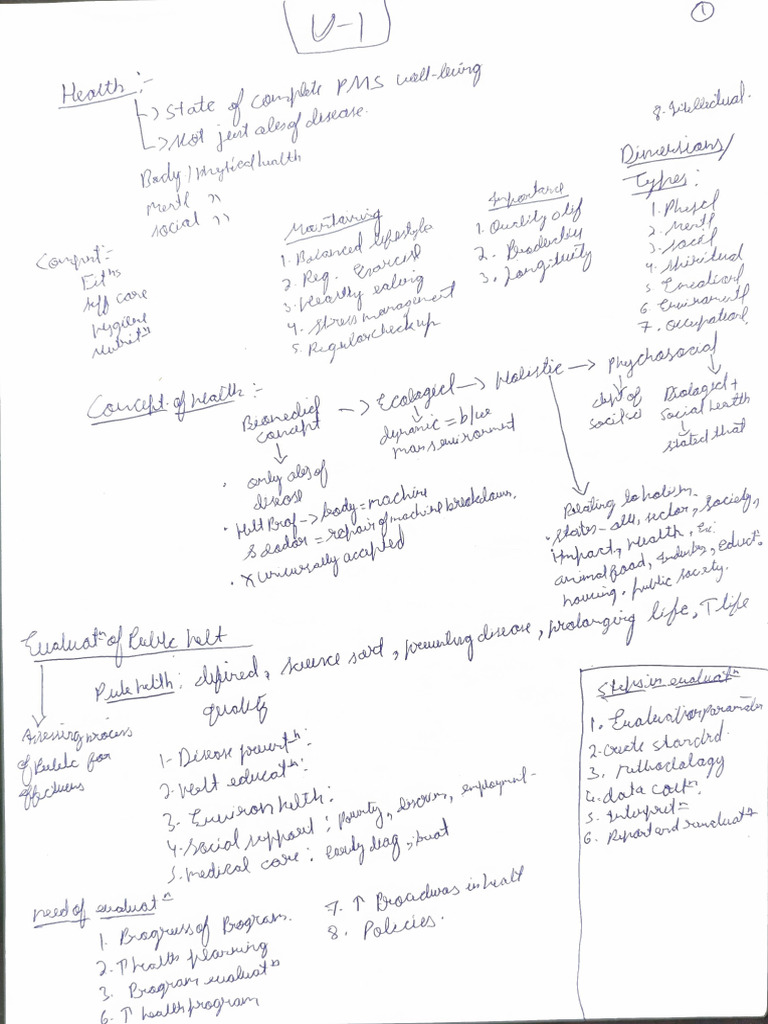 U-1
1
Health :-
→ State of complete PMS well-being
→ Not just abs of disease.
Body / physical health
mentl "
social "
Compont:-
self care
hygiene
Nutritn
Maintaining
1. Balanced lifestyle
2. Reg. Exercise
3. Healthy eating
4. Stress management
5. Regular check up
Importance
1. Quality of
2. Productivity
3. Longituity
8. Intellectual.
Dimensions/
Types:
1. Physcl
2. Mentl
3. Social
4. Spiritual
5. Emotional
6. Environmentl
7. Occupational
Concept of health :-
Biomedicl concept → Ecological → Holistic → Phychosocial
• only abs of
disease
• Helt Prof → body = machine
& doctor = repair of machine breakdown.
• X universally accepted
dynamic = b/w
man environment
dept of
Biological +
social health
stated that
Relating to holism
• states - all, sector, society,
impact, health, Ex:
animal food, Industry, eductn
housing, public society.
Evaluatn of Public helt
Assessing process
of Public for
Public helth : defined, science & art, preventing disease, prolonging life, ↑ life
quality
1. Disease preventn:
2. Helt educatn:
3. Environ helth:
4. Social support : poverty, discrim, employment-
5. Medical care : Early diag, treat
Steps in evaluatn
1. Evaluation parameter
2. Create standrd.
3. Methodology
4. data
5. Interpretn
6. Report and reevaluatn
need of evaluatn
1. Progress of Program.
2. ↑ health planning
3. Program evaluatn
6. ↑ health program
7. ↑ in healt
8. Policies.